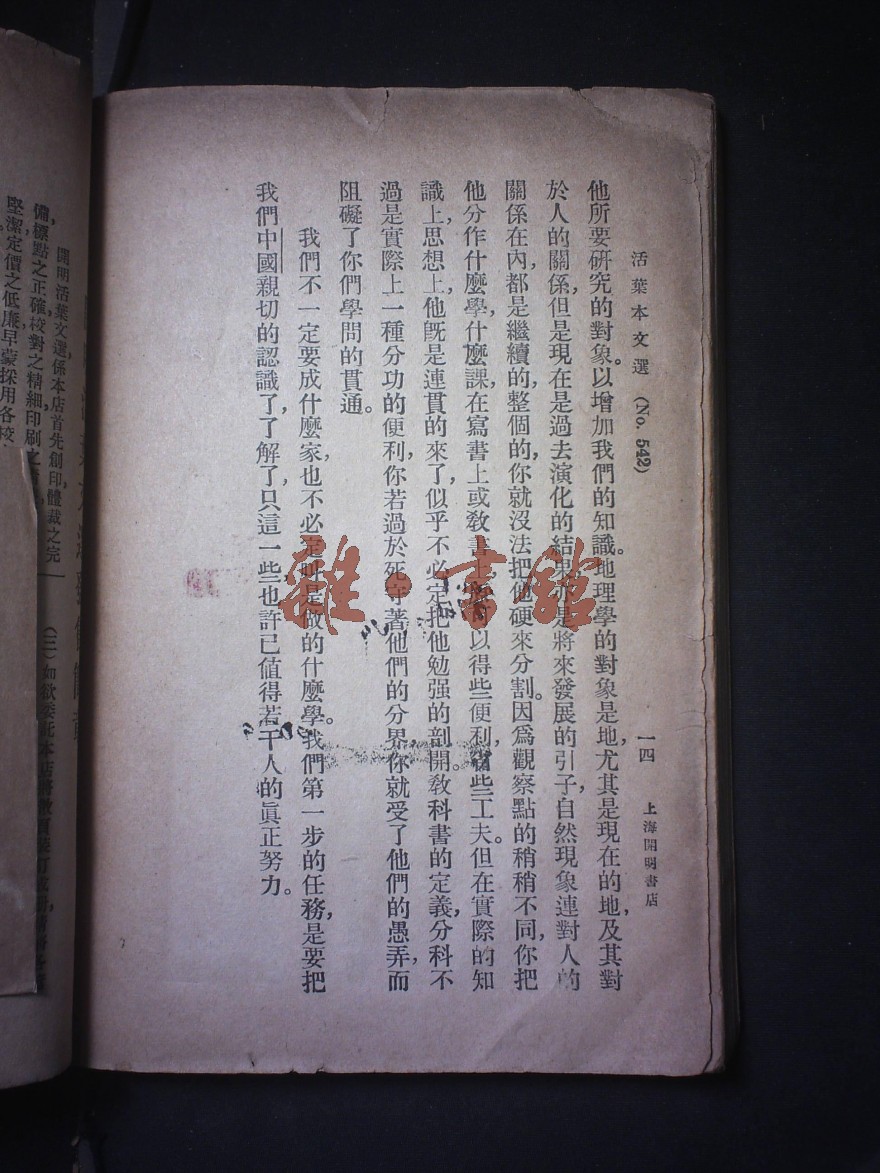 活葉本文選 (No. 542) 一四 上海開明書店
他所要研究的對象。以增加我們的知識。地理學的對象是地，尤其是現在的地，及其對
於人的關係，但是現在是過去演化的結果，亦是將來發展的引子，自然現象連對人的
關係在內，都是繼續的，整個的，你就沒法把他硬來分割。因爲觀察點的稍稍不同，你把
他分作什麼學，什麼課，在寫書上或教書上，可以得些便利，省些工夫。但在實際的知
識上，思想上，他旣是連貫的來了，似乎不必定把他勉强的剖開。教科書的定義，分科不
過是實際上一種分功的便利，你若過於死守著他們的分界，你就受了他們的愚弄，而
阻礙了你們學問的貫通。
我們不一定要成什麼家，也不必定叫是做的什麼學。我們第一步的任務，是要把
我們中國親切的認識了，了解了，只這一些，也許已値得若干人的眞正努力。
雜·書館
開明活葉文選係本店首先創印，體裁之完
備，標點之正確，校對之精細，印刷之
堅潔，定價之低廉，早蒙採用各校
(三)如欲委託本店將散頁裝訂